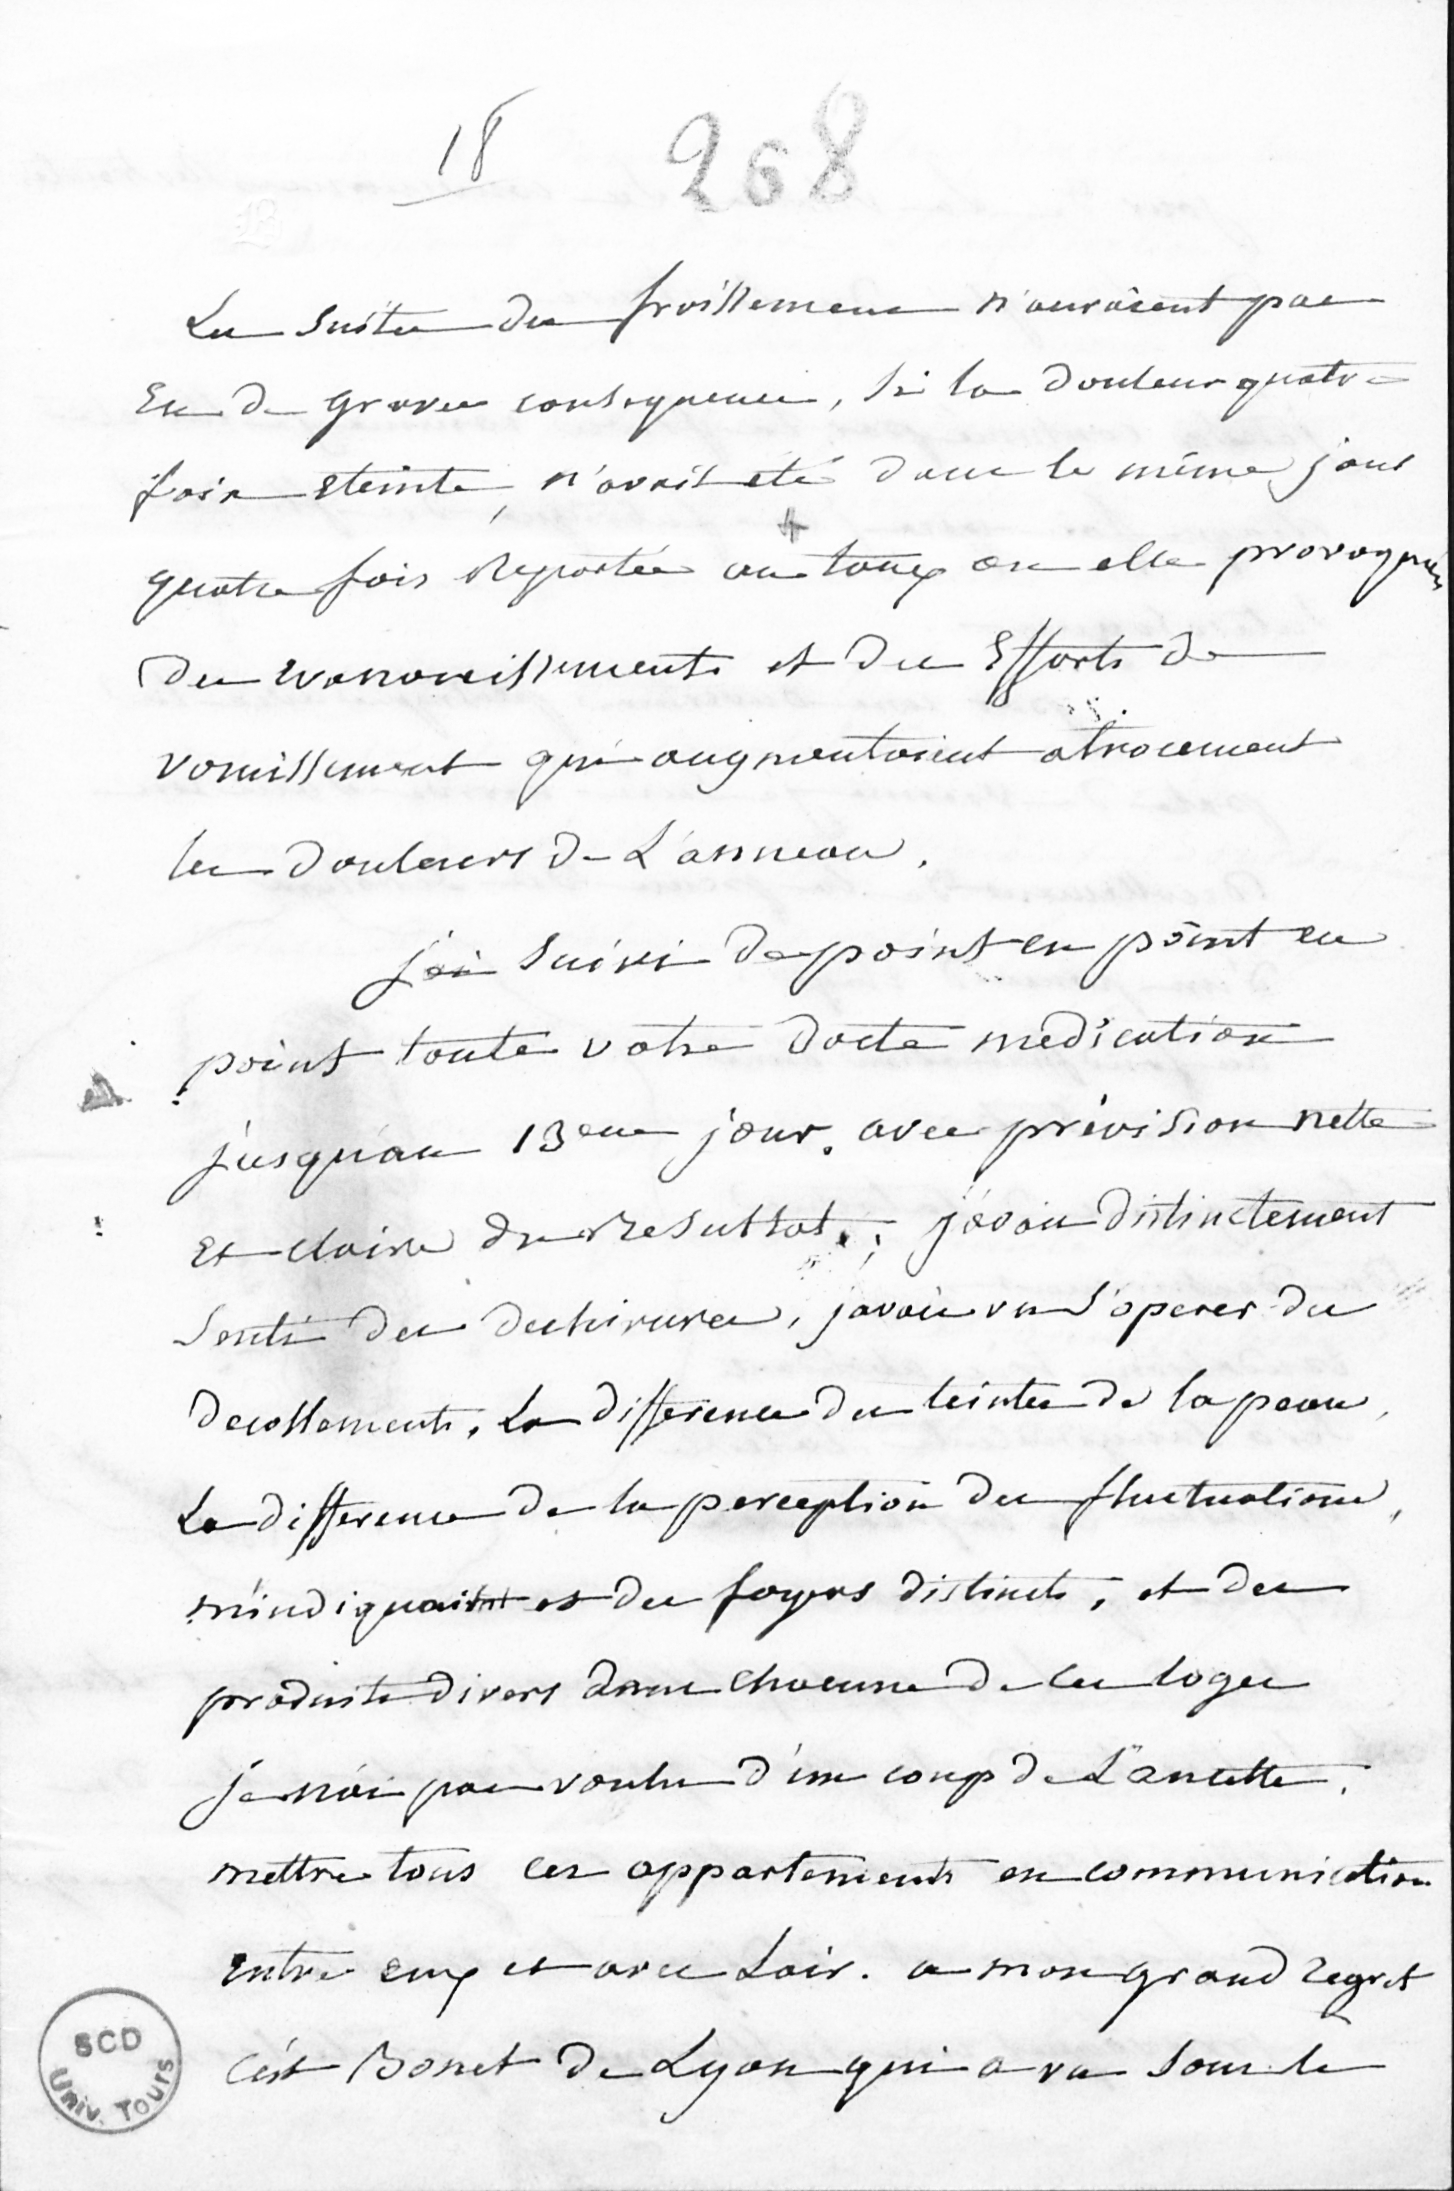 18 268
Les suites du froissement n'auraient pas
Eu de graves consequences, si la douleur quatre
fois eteinte, n'avait eté dans le même jour
quatre fois reportée au taux ou elle provoquait
des evanouissements et des Efforts de
vomissement qui augmentaient atrocement
les douleurs de L'anneau.
j'ai suivi de point en point en
point toute votre docte medication
jusqu'au 13eme jour. avec prévision nette
Et claire du Resultat; j'avais distinctement
senti des dechirures, j'avais vu s'operer des
decollements. La difference des teintes de la peau,
La difference de la perception des fluctuations,
m'indiquaient et des foyers distincts, et des
produits divers dans chacune de ces loges
je n'ai pas voulu d'un coup de Lancette.
mettre tous ces appartements en communication
Entre eux et avec L'air. a mon grand regret
C'est Bonet de Lyon qui a vu sous le
SCD
Univ. Tours